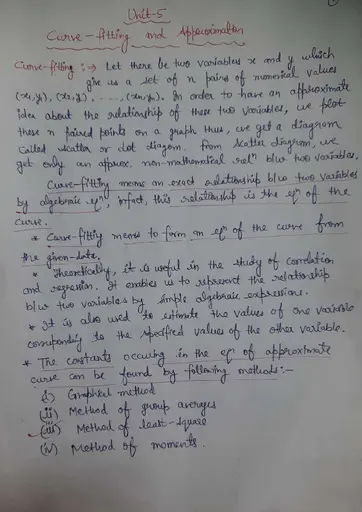 Unit-5
Curve-fitting and Approximation
Curve-fitting :→ Let there be two variables x and y which
give us a set of n pairs of numerical values
(x₁,y₁), (x₂,y₂), ....., (xₙ,yₙ). In order to have an approximate
idea about the relationship of these two variables, we plot
these n paired points on a graph thus, we get a diagram
called scatter or dot diagram. from scatter diagram, we
get only an approx. non-mathematical relⁿ b/w two variables.
Curve-fitting means an exact relationship b/w two variables
by algebraic eqⁿ, infact, this relationship is the eqⁿ of the
curve.
* Curve-fitting means to form an eqⁿ of the curve from
the given data.
* Theoretically, it is useful in the study of correlation
and regression. It enables us to represent the relationship
b/w two variables by simple algebraic expressions.
* It is also used to estimate the values of one variable
corresponding to the specified values of the other variable.
* The constants occuring in the eqⁿ of approximate
curve can be found by following methods:-
(i) Graphical method
(ii) Method of group averages
(iii) Method of least-square
(iv) Method of moments.